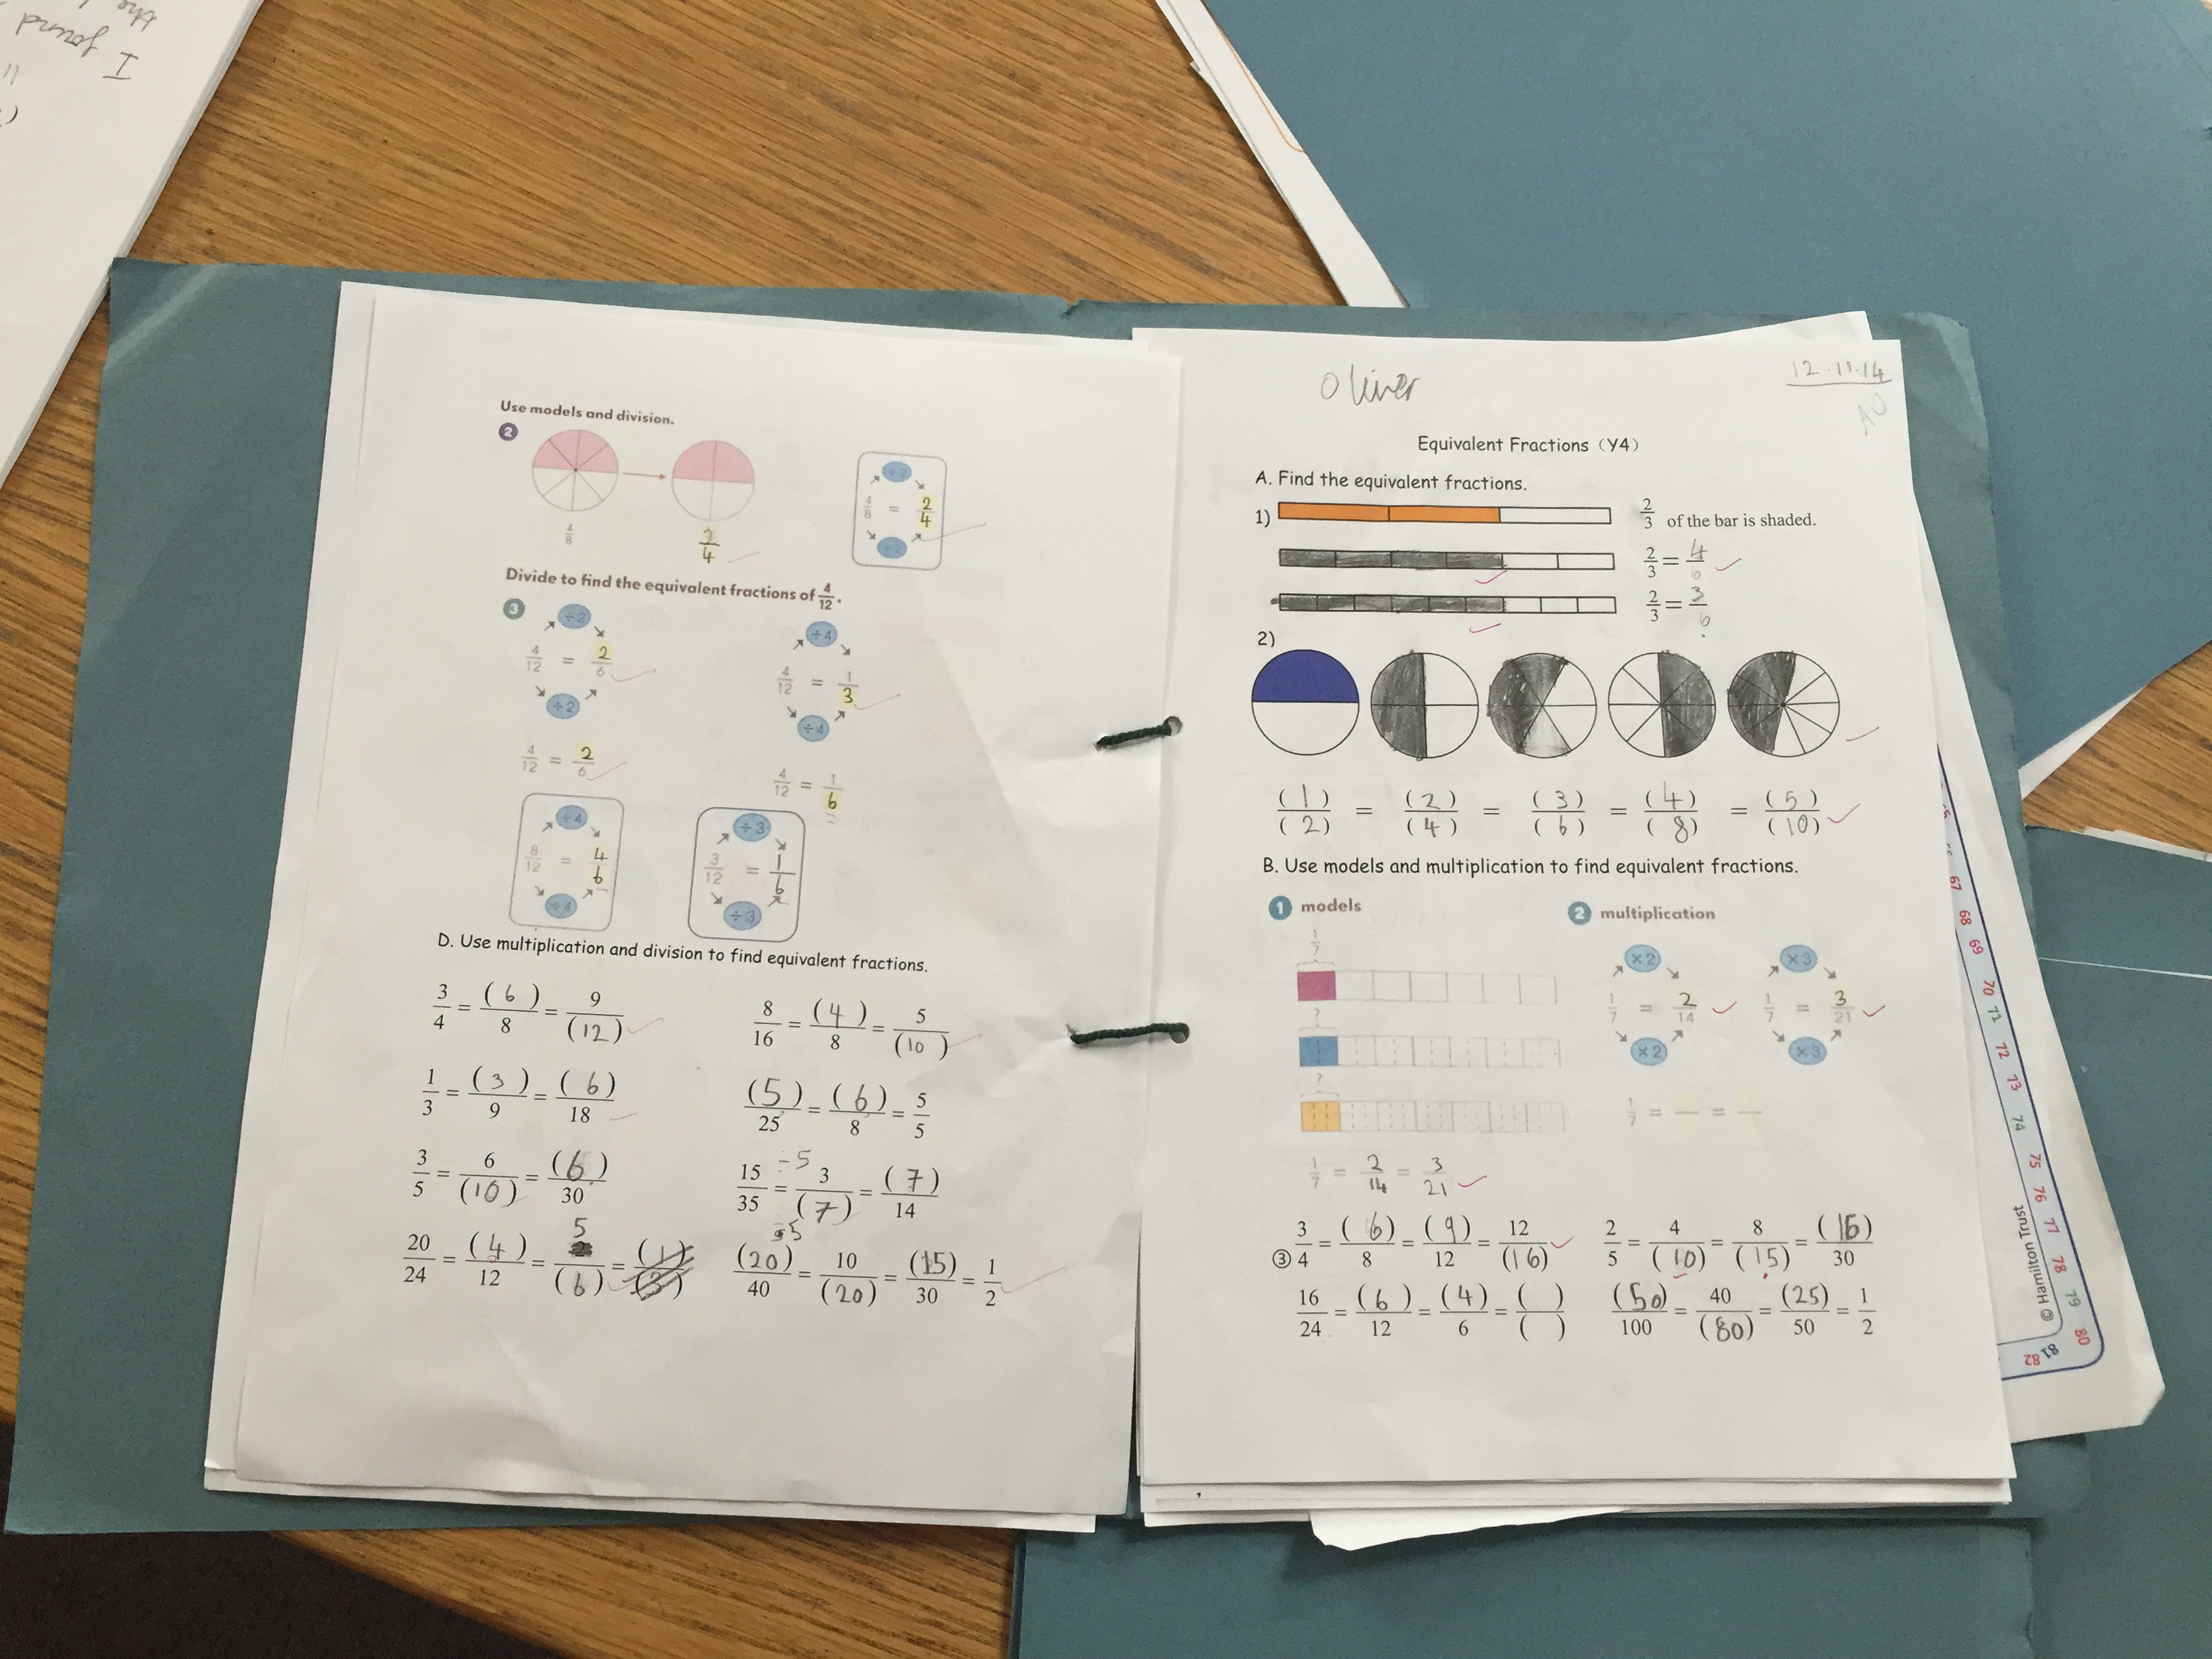 I found
the
Use models and division.
2
4/8 2/4
÷2
4/8 = 2/4
÷2
Divide to find the equivalent fractions of 4/12.
3
÷2 ÷4
4/12 = 2/6 4/12 = 1/3
÷2 ÷4
4/12 = 2/6 4/12 = 1/6
÷4 ÷3
8/12 = 4/6 3/12 = 1/6
÷4 ÷3
D. Use multiplication and division to find equivalent fractions.
3/4 = (6)/8 = 9/(12) 8/16 = (4)/8 = 5/(10)
1/3 = (3)/9 = (6)/18 (5)/25 = (6)/8 = 5/5
÷5
3/5 = 6/(10) = (6)/30 15/35 = 3/(7) = (7)/14
÷5
20/24 = (4)/12 = 5/(6) = (1)/(3) (20)/40 = 10/(20) = (15)/30 = 1/2
Oliver
12.11.14
Equivalent Fractions (Y4)
A. Find the equivalent fractions.
1) 2/3 of the bar is shaded.
2/3 = 4/6
2/3 = 3/6
2)
(1)/(2) = (2)/(4) = (3)/(6) = (4)/(8) = (5)/(10)
B. Use models and multiplication to find equivalent fractions.
1 models 2 multiplication
1/7
×2 ×3
?
1/7 = 2/14 1/7 = 3/21
×2 ×3
?
1/7 = __ = __
1/7 = 2/14 = 3/21
③ 3/4 = (6)/8 = (9)/12 = 12/(16) 2/5 = 4/(10) = 8/(15) = (16)/30
16/24 = (6)/12 = (4)/6 = ( )/( ) (50)/100 = 40/(80) = (25)/50 = 1/2
67 68 69 70 71 72 73 74 75 76 77 78 79 80 81 82
© Hamilton Trust